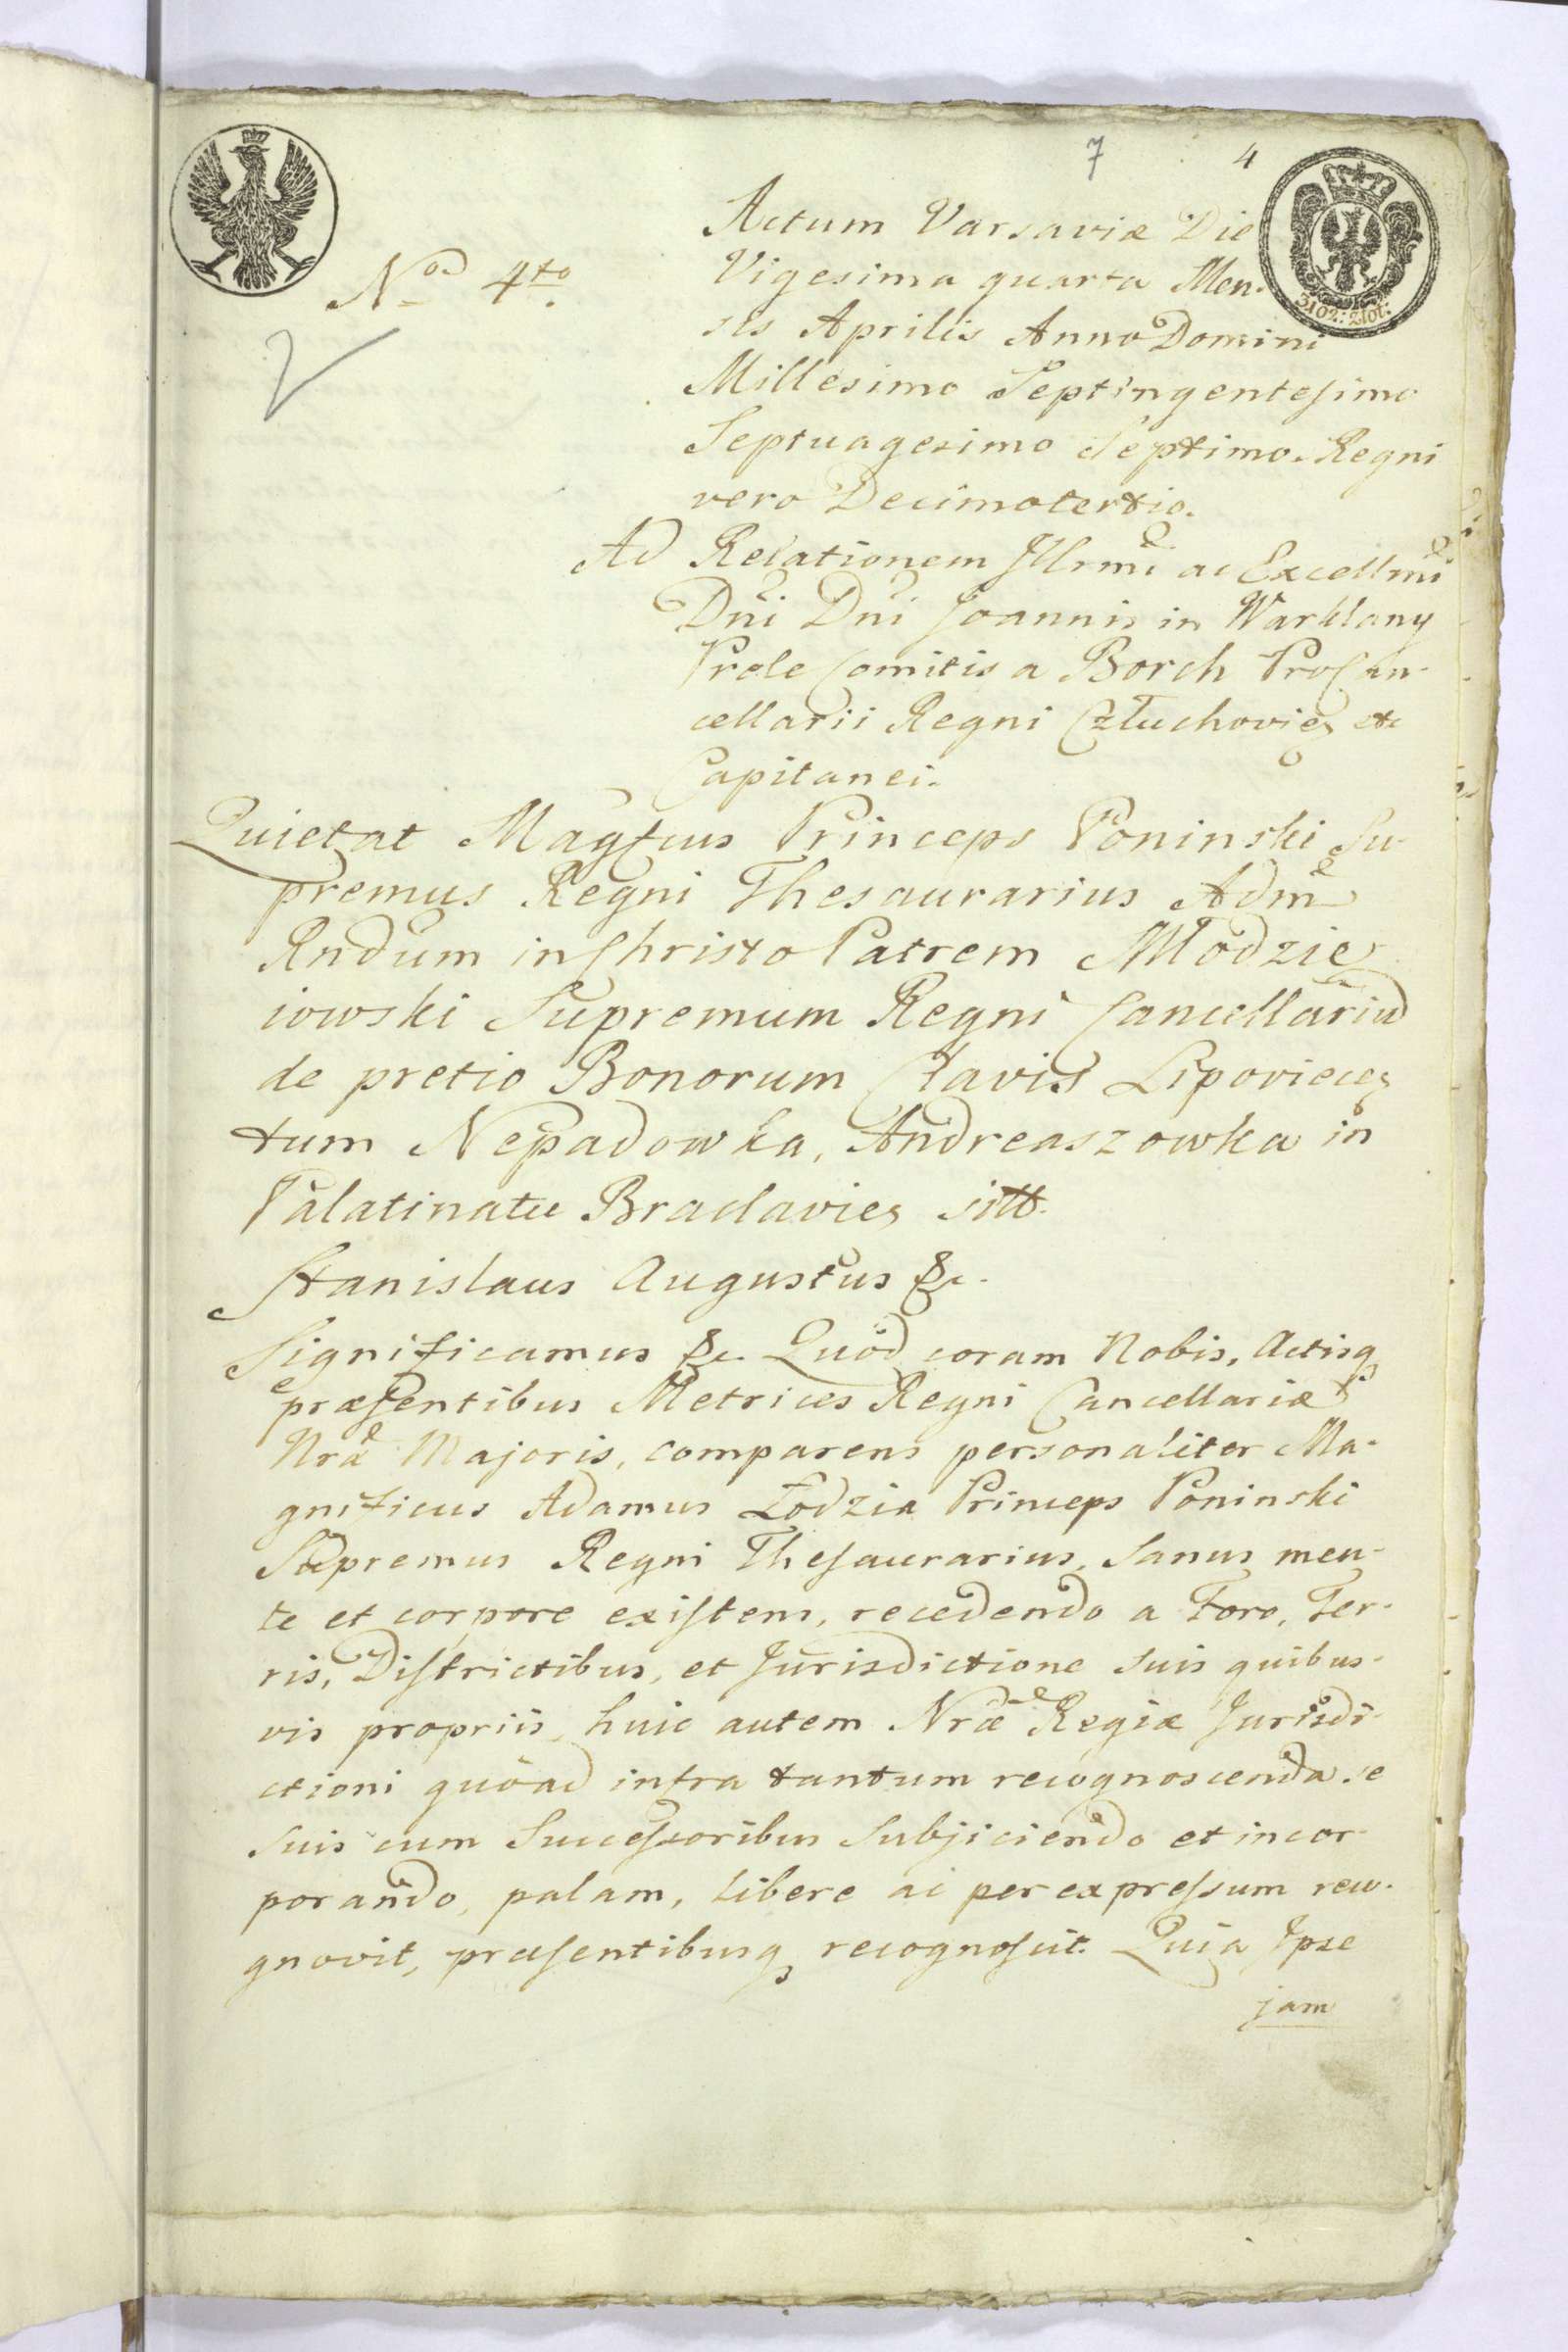 7 4
Actum Varsaviæ Die
No 4to
Vigesima quarta Men-
sis Aprilis Anno Domini
3102: zlot:
Millesimo Septingentesimo
Septuagesimo Septimo. Regni
vero Decimotertio.
Ad Relationem Illrmi ac Excellmi
Dni Dni Joannis in Warklany
Prele Comitis a Borch ProCan-
cellarii Regni Człuchovieȝ etc
Capitanei.
Quietat Magfcus Princeps Poninski Su-
premus Regni Thesaurarius Adm
Rndum in Christo Patrem Młodzie
iowski Supremum Regni Cancellariu
de pretio Bonorum Clavis Lipovieceȝ
tum Nepadowka, Andreaszowka in
Palatinatu Braclavieȝ sitt.
Stanislaus Augustus &c.
Significamus &c. Quod coram Nobis, Actisq
præsentibus Metrices Regni Cancellariæ
Nræ Majoris, comparens personaliter Ma-
gnificus Adamus Łodzia Princeps Poninski
Supremus Regni Thesaurarius, Sanus men-
te et corpore existens, recedendo a Foro, Ter-
ris, Districtibus, et Jurisdictione Suis quibus-
vis propriis, huic autem Nræ Regiæ Jurisdi-
ctioni quoad infra tantum recognoscenda se
suis cum Successoribus Subjiciendo et incor-
porando, palam, libere ac per expressum reco-
gnovit, præsentibusq recognoscit. Quia Ipse
jam